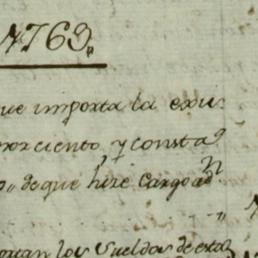 1763,,
que importa la exu
porciento, y consta
de que hize Cargo a dn
los Sueldos de esta